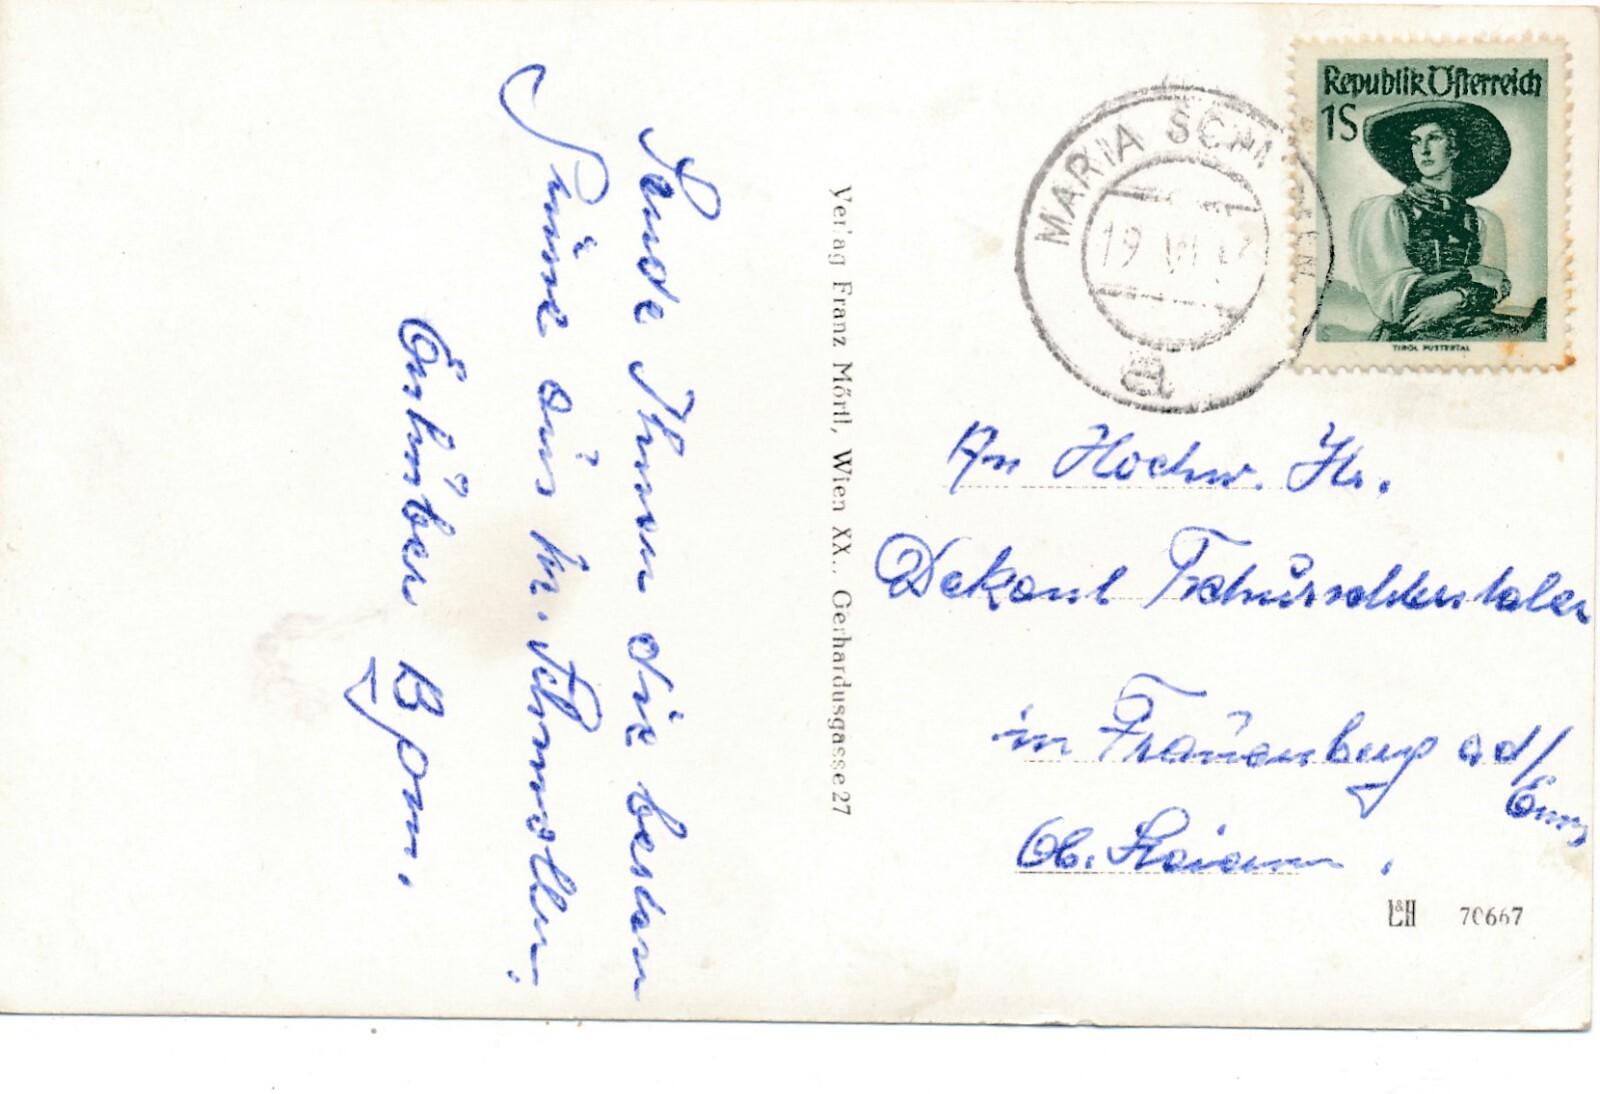 Sende Ihnen die besten
Grüße aus M. Schmolln.
Gruber
Verlag Franz Mörtl, Wien XX., Gerhardusgasse 27
Republik Österreich
1S
TIROL PUSTERTAL
MARIA SCH
19 VI
a
An Hochw. Hr.
Dekant
in Frauenberg ad/
Enns
Ob. Steierm.
L&H 70667